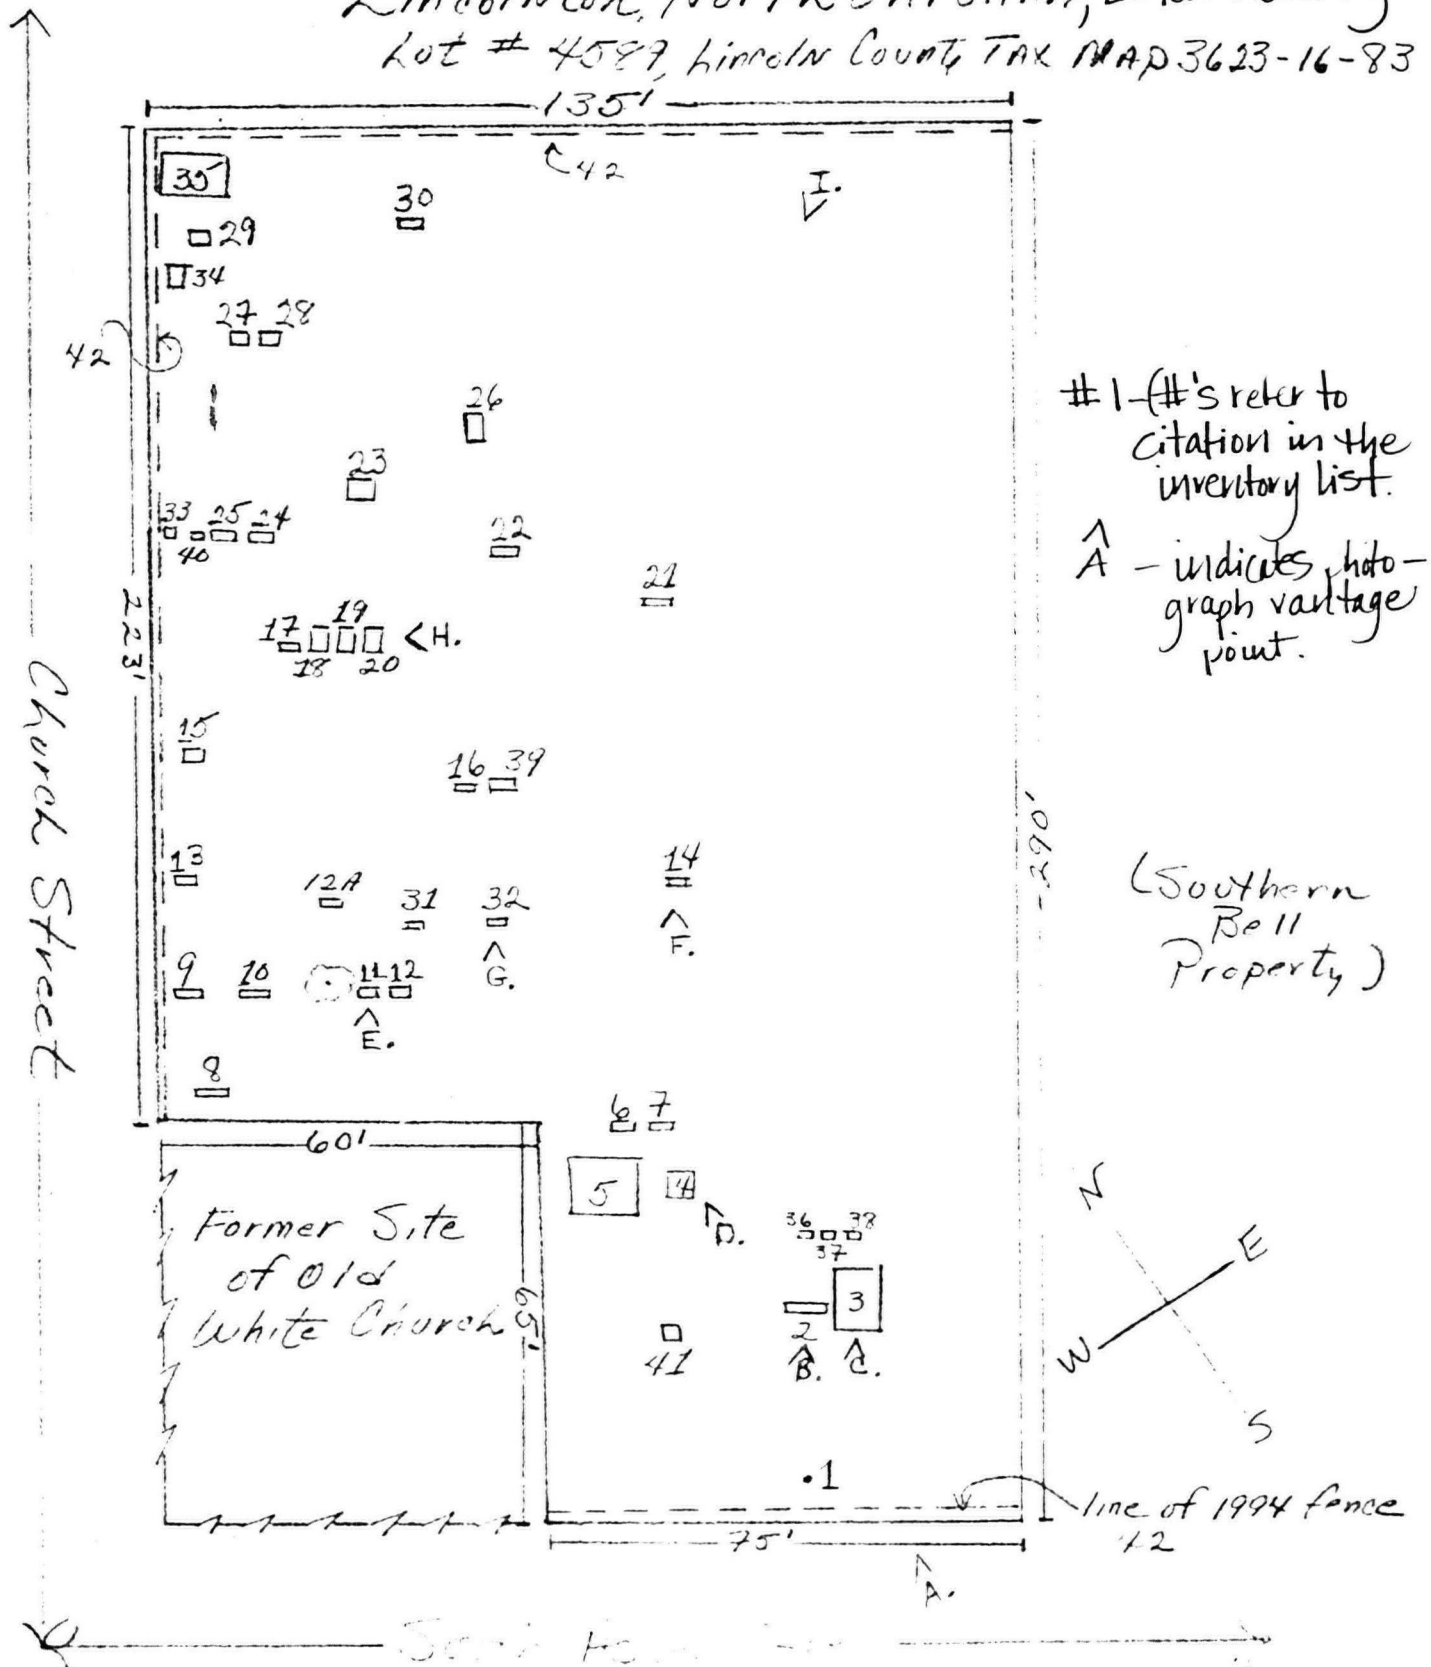 North Carolina,
Lot # 4589, Lincoln County TAX MAP 3623-16-83
135'
42
35
I.
30
29
34
27 28
42
26
23
33 25 24
40
22
21
223'
19
17
18 20
<H.
15
16 39
13
14
12A
31 32
F.
G.
9 10 11 12
E.
8
6 7
60'
5 4
D.
36 38
37
3
2
B. C.
41
65'
Former Site
of Old
White Church
.1
75'
A.
290'
Church Street
#1-(#'s refer to
citation in the
inventory list.
A - indicates photo-
graph vantage
point.
(Southern
Bell
Property)
N
E
W
S
line of 1994 fence
42